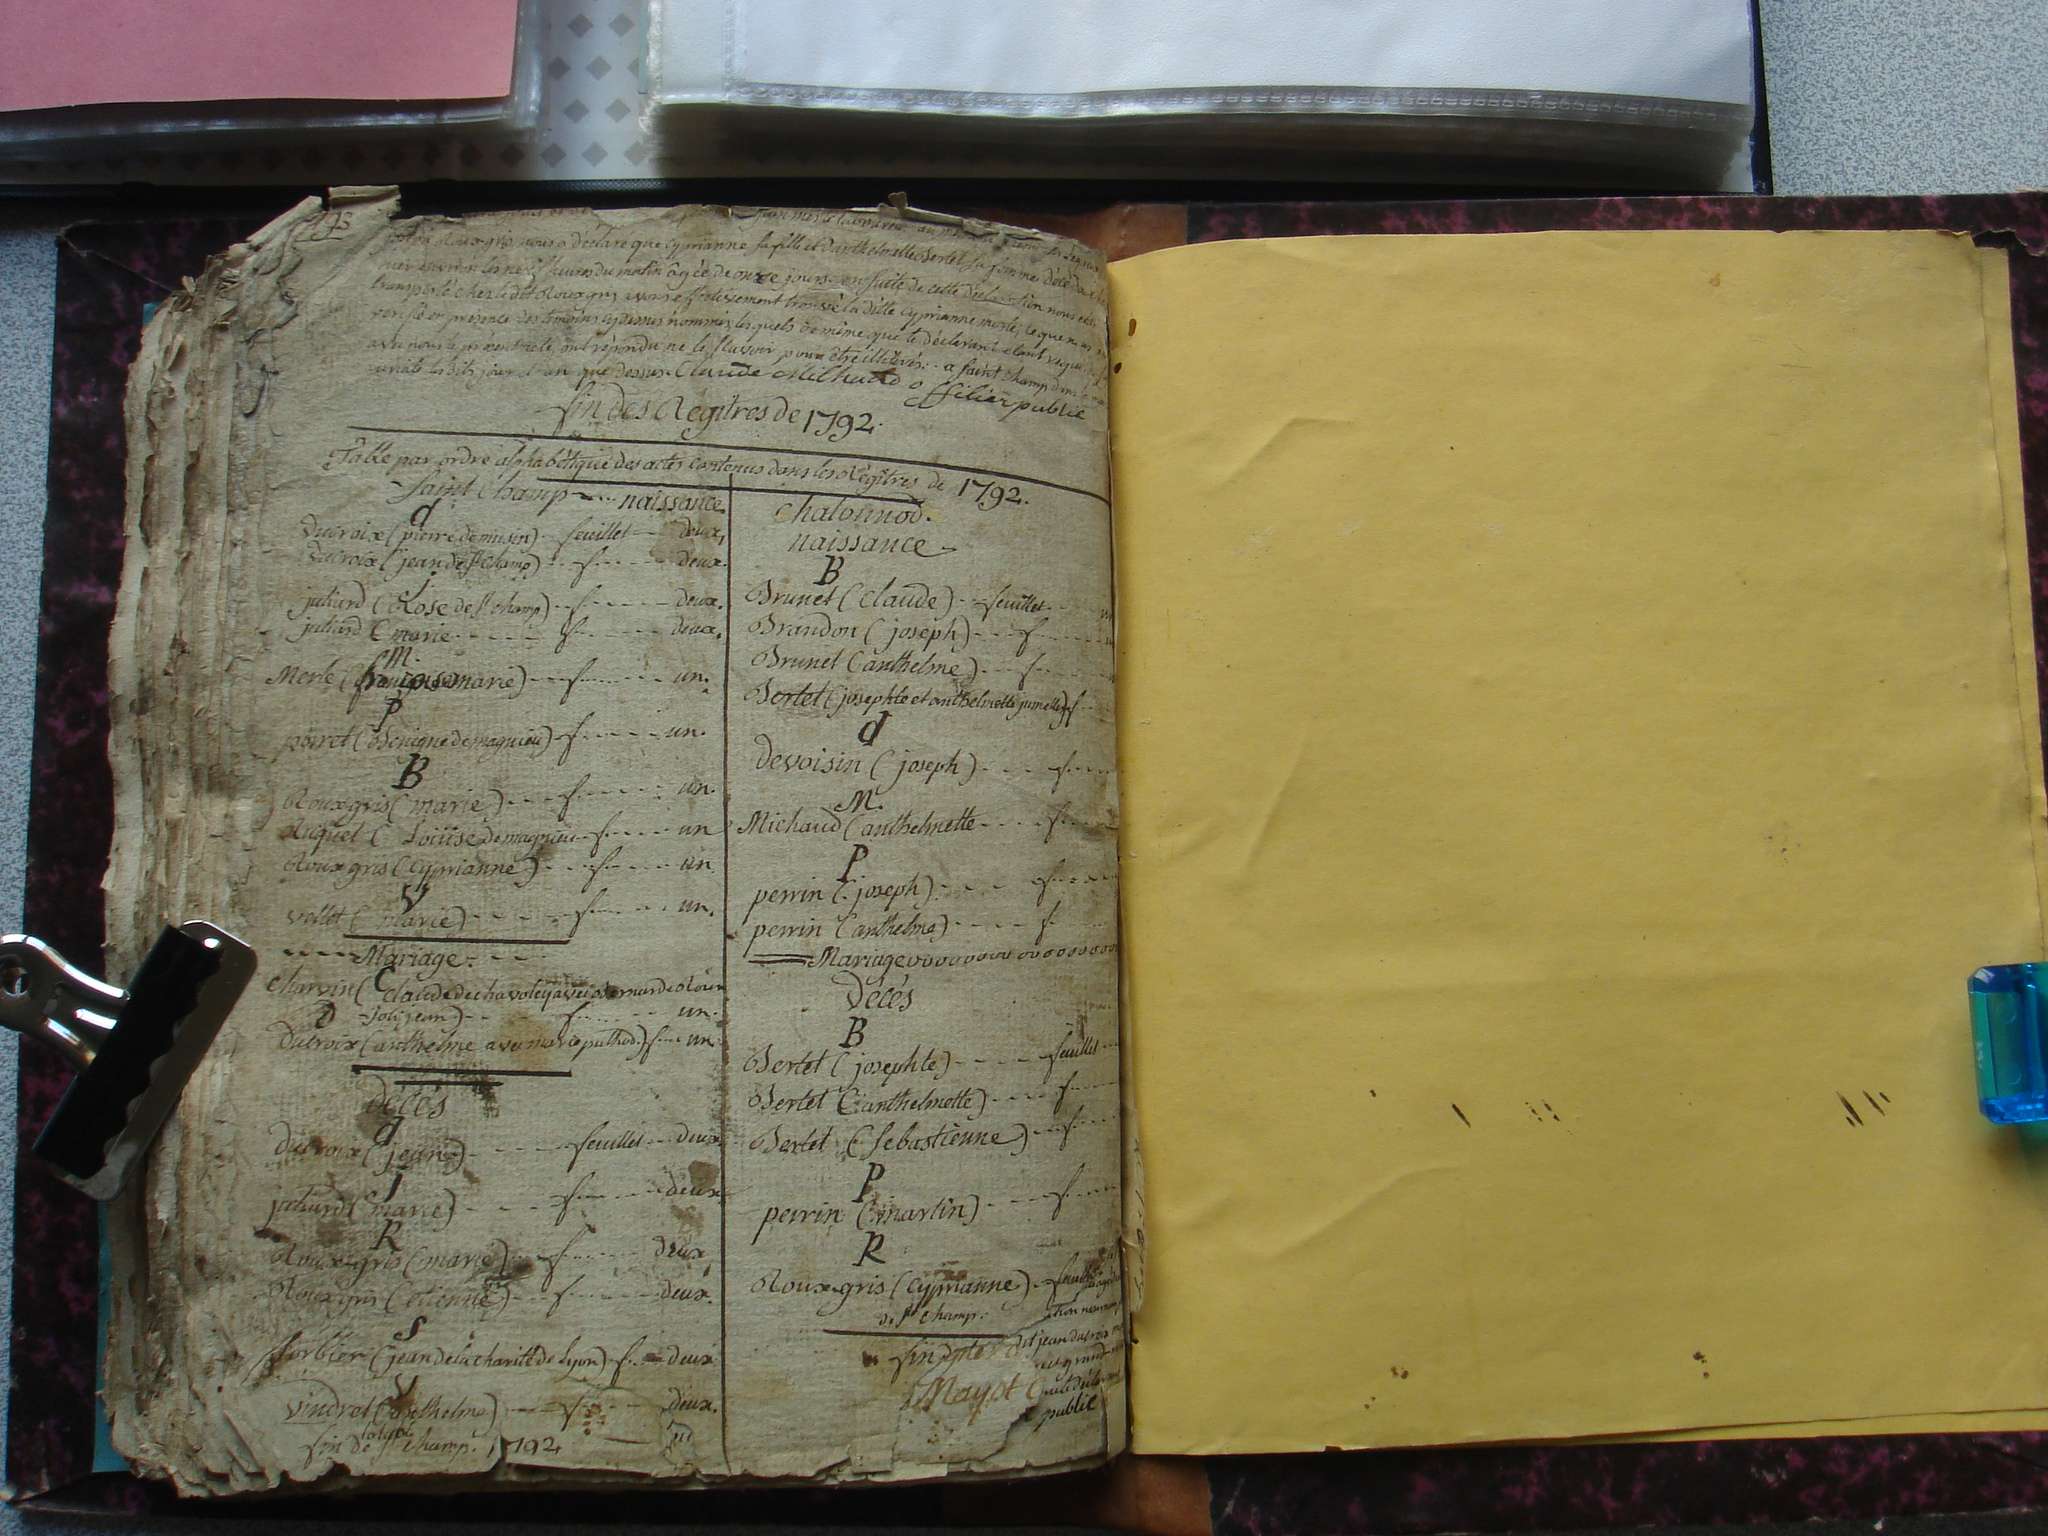 nous a déclaré que cyprianne sa fille et d'anthelmette Bertet sa femme
heures du matin âgée de onze jours en suite de cette déclaration nous
transporté chez le dit Rouxgris avons effectivement trouvé la ditte cyprianne morte, ce que
en présence des témoins cydessus nommés lesquels de même que le déclarant
ont répondu ne le scavoir pour être illitérés. a saint champ dans
que dessus. Claude Milhaud officier public
fin des Regîtres de 1792.
Table par ordre alphabétique des actes contenus dans les Régîtres de 1792.
Saint Champ naissance.
d
Ducroix (pierre de musin) feuillet deux,
Ducroix (jean de st Champ) f deux.
j
juliard (Rose de st champ) f deux.
juliard (marie f deux.
M.
Merle (françoise marie) f un.
P
poiret (Benigne de magnieu) f un.
B
Rouxgris (marie) f un.
Riquet (Loüise de magnieu f un
Rouxgris (cyprianne) f un
V
vellet (marie) f un.
Mariage.
C
charvin (claude de chavoley avec Bernarde
joli jean) f un.
D
Ducroix (anthelme avec marie puthod.) f un.
décés
d
ducroix (jean) feuillet deux
J
juliard (marie) f deux
R
Roux-gris (marie) f deux
Rouxgris (etienne) f deux.
S
Sorbier (jean de la charité de Lyon) f deux
V
vindret (anthelme) f deux.
fin de st champ. 1792
chalonnod.
naissance
B
Brunet (claude) feuillet
Brandon (joseph) f
Brunet (anthelme) f
Bertet (josephte et anthelmette jumelle) f
d
devoisin (joseph) f
M.
Michaud (anthelmette f
P
perrin (joseph) f
perrin (anthelme) f
Mariage ooooooooooooooo
Décés
B
Bertet (josephte) feuillet
Bertet (anthelmette) f
Bertet (Sebastienne) f
P
perrin (martin) f
R
Roux-gris (cyprianne) feuillet
de st champ.
fin
dit jean ducroix
public